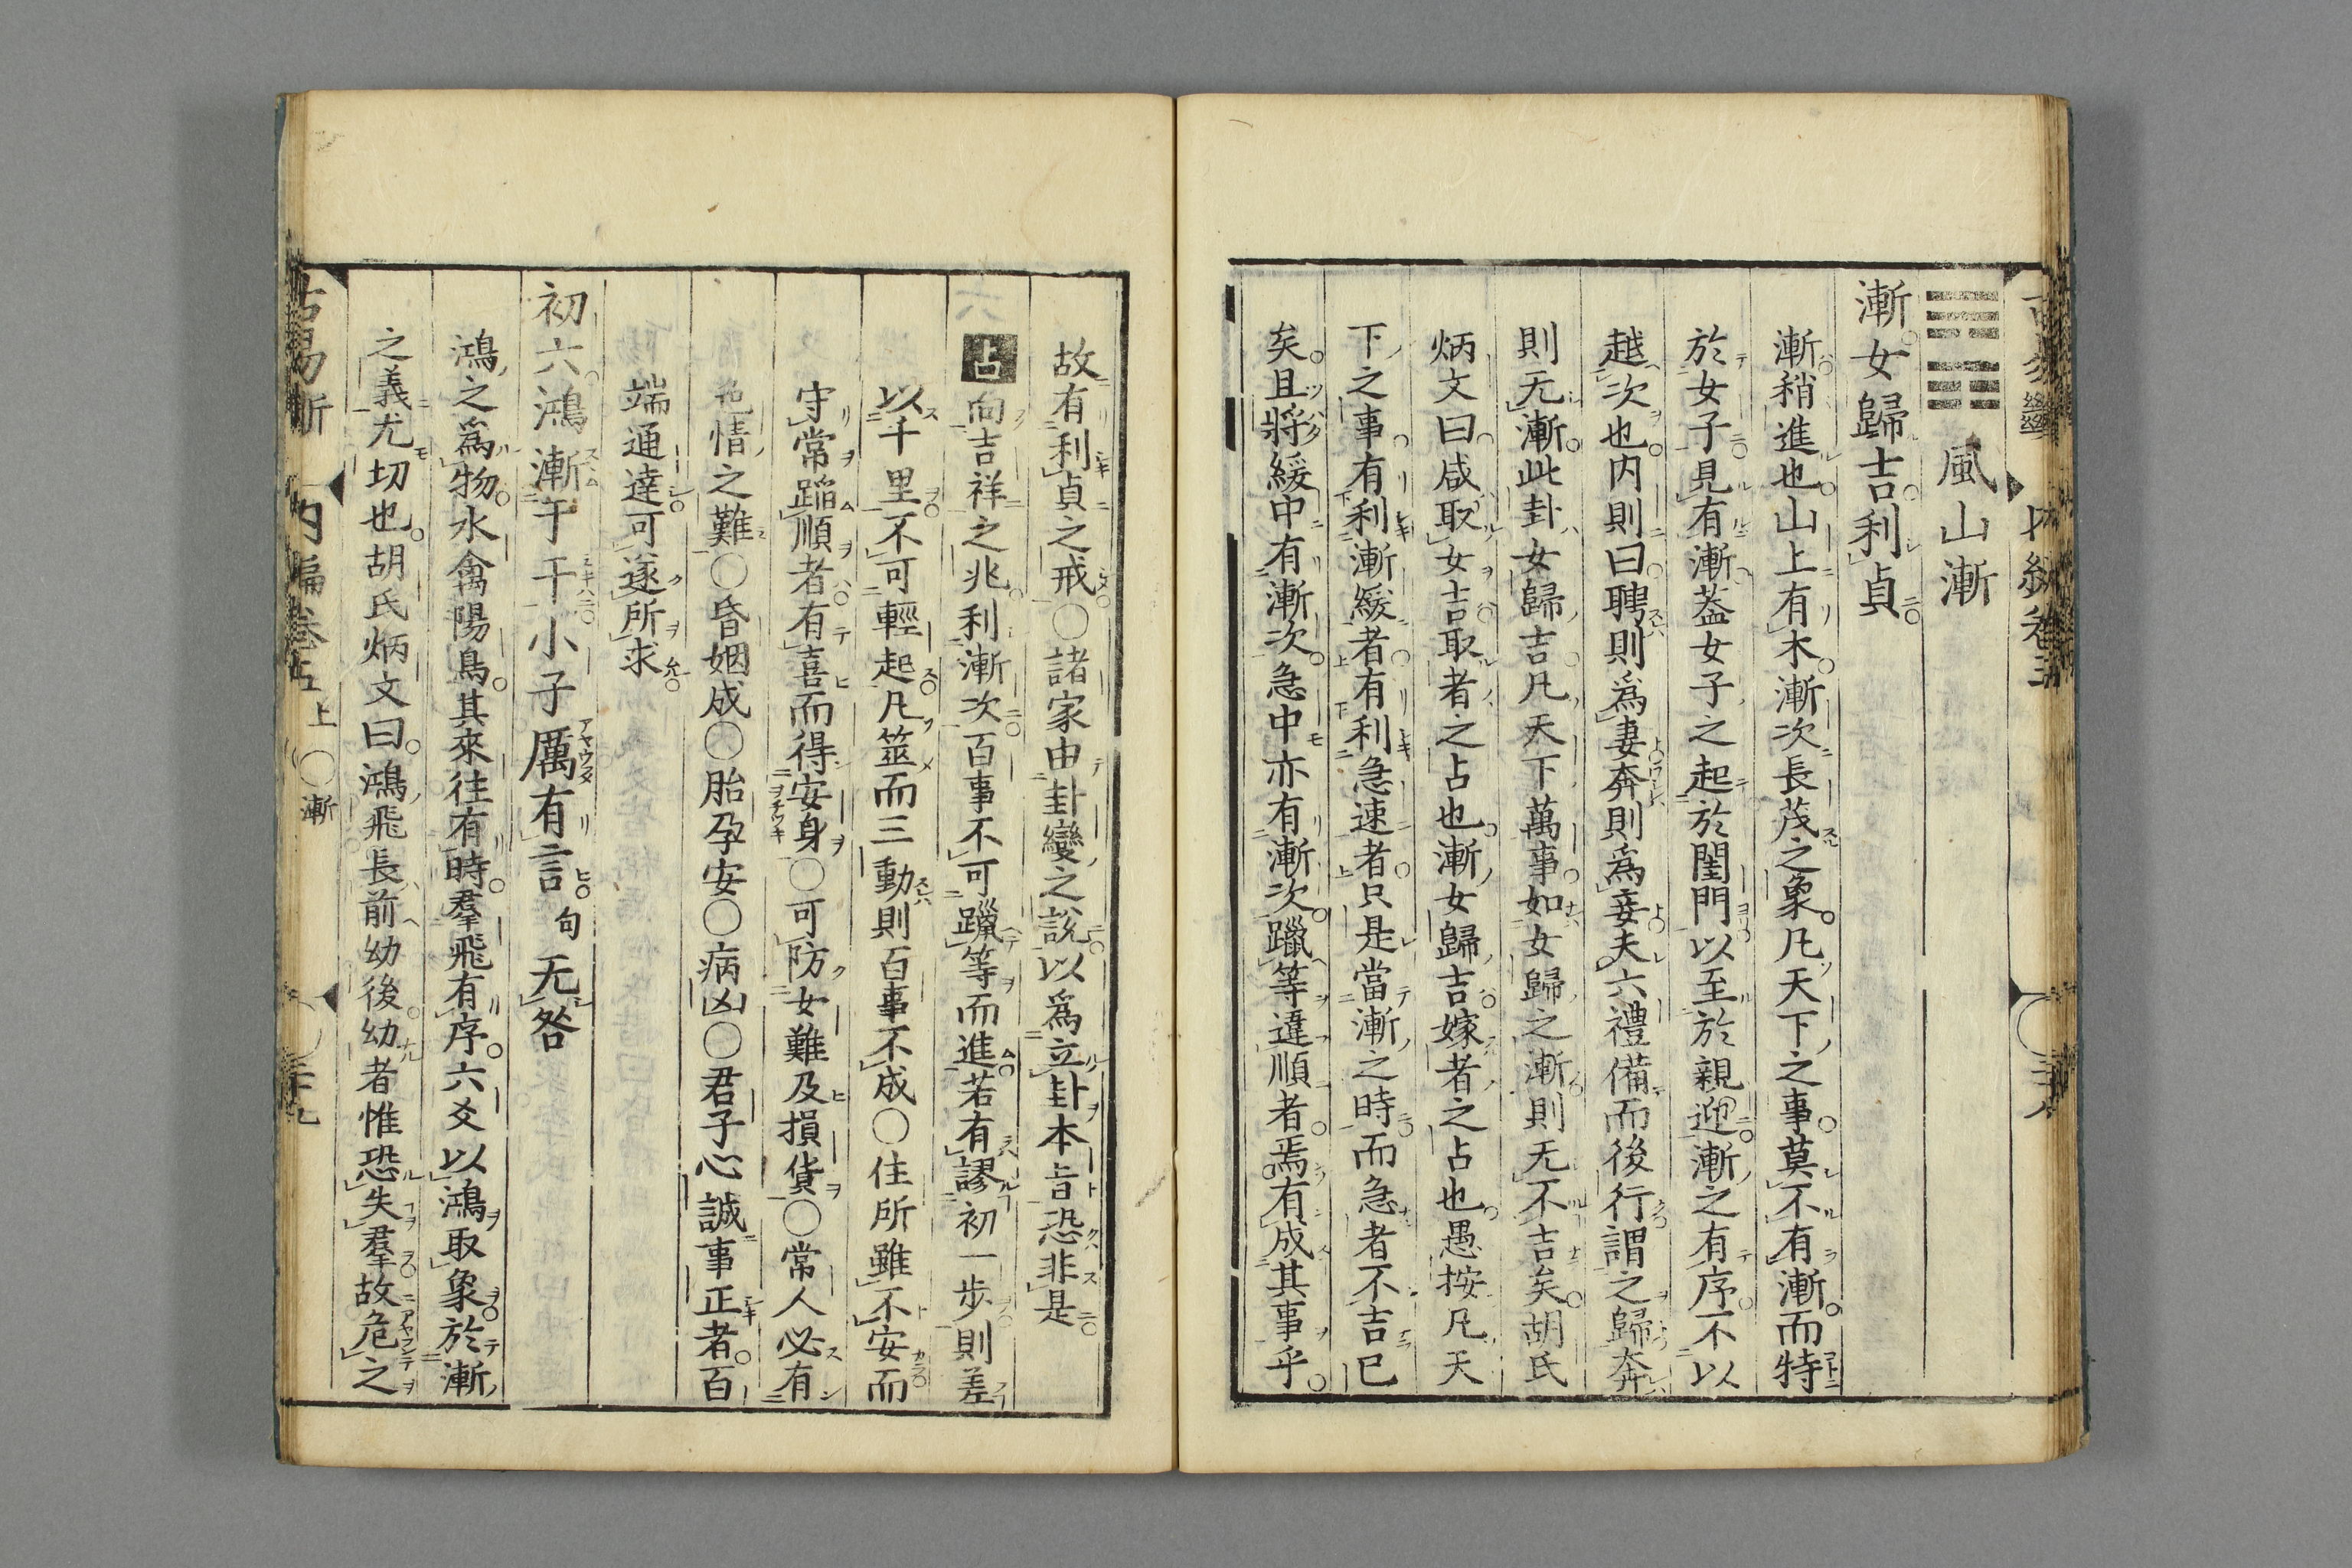 風山漸
漸女歸吉利貞
漸稍進也山上有木漸次長茂之象凡天下之事莫不有漸而特
於女子見有漸葢女子之起於閨門以至於親迎漸之有序不以
越次也内則曰聘則爲妻奔則爲妾夫六禮備而後行謂之歸奔
則无漸此卦女歸吉凡天下萬事如女歸之漸則无不吉矣胡氏
炳文曰咸取女吉取者之占也漸女歸吉嫁者之占也愚按凡天
下之事有利漸緩者有利急速者只是當漸之時而急者不吉已
矣且將緩中有漸次急中亦有漸次躐等違順者焉有成其事乎
故有利貞之戒○諸家由卦變之說以爲立卦本旨恐非是
占向吉祥之兆利漸次百事不可躐等而進若有謬初一步則差
以千里不可輕起凡筮而三動則百事不成○住所雖不安而
守常蹈順者有喜而得安身○可防女難及損貨○常人必有
色情之難○昏姻成○胎孕安○病凶○君子心誠事正者百
端通達可遂所求
初六鴻漸于干小子厲有言句无咎
鴻之爲物水禽陽鳥其來往有時羣飛有序六爻以鴻取象於漸
之義尤切也胡氏炳文曰鴻飛長前幼後幼者惟恐失羣故危之
古易斷 内編卷五上 ○漸 三十九